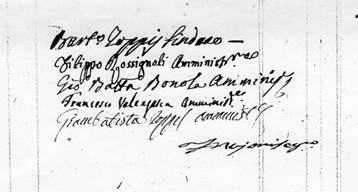 Bart.o Zoppis Sindaco
Filippo Rossignoli Amminis.re
Gio Batta Bonola Amminis
Francesco Valenzasca Amminis.re
Giambatista Zoppis Amminis